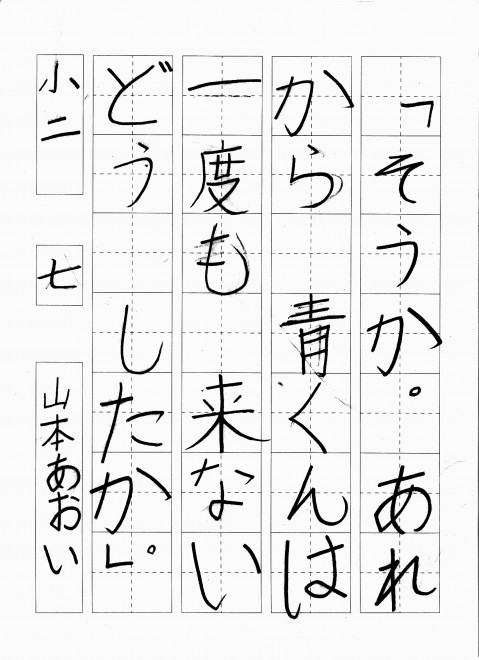 「そうか。 あれ
から 青くんは
一度も 来ない
どう したか。」
小二 七 山本あおい